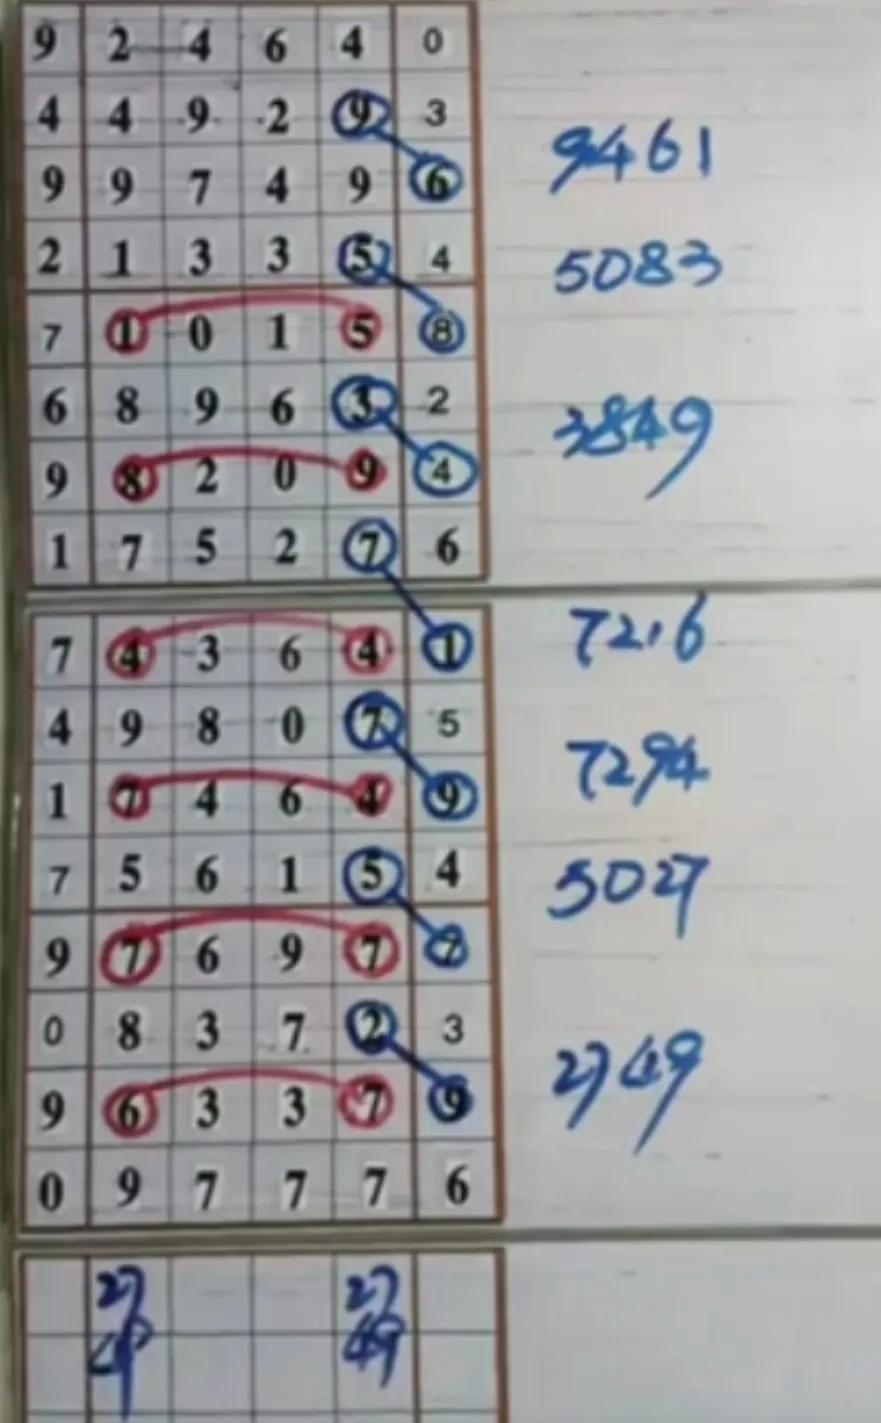 9 2 4 6 4 0
4 4 9 2 9 3
9 9 7 4 9 6
9461
2 1 3 3 5 4
5083
7 1 0 1 5 8
6 8 9 6 3 2
3849
9 8 2 0 9 4
1 7 5 2 7 6
7 4 3 6 4 1
7216
4 9 8 0 7 5
1 7 4 6 4 9
7294
7 5 6 1 5 4
5027
9 7 6 9 7 7
0 8 3 7 2 3
9 6 3 3 7 9
2749
0 9 7 7 7 6
27 27
49 49